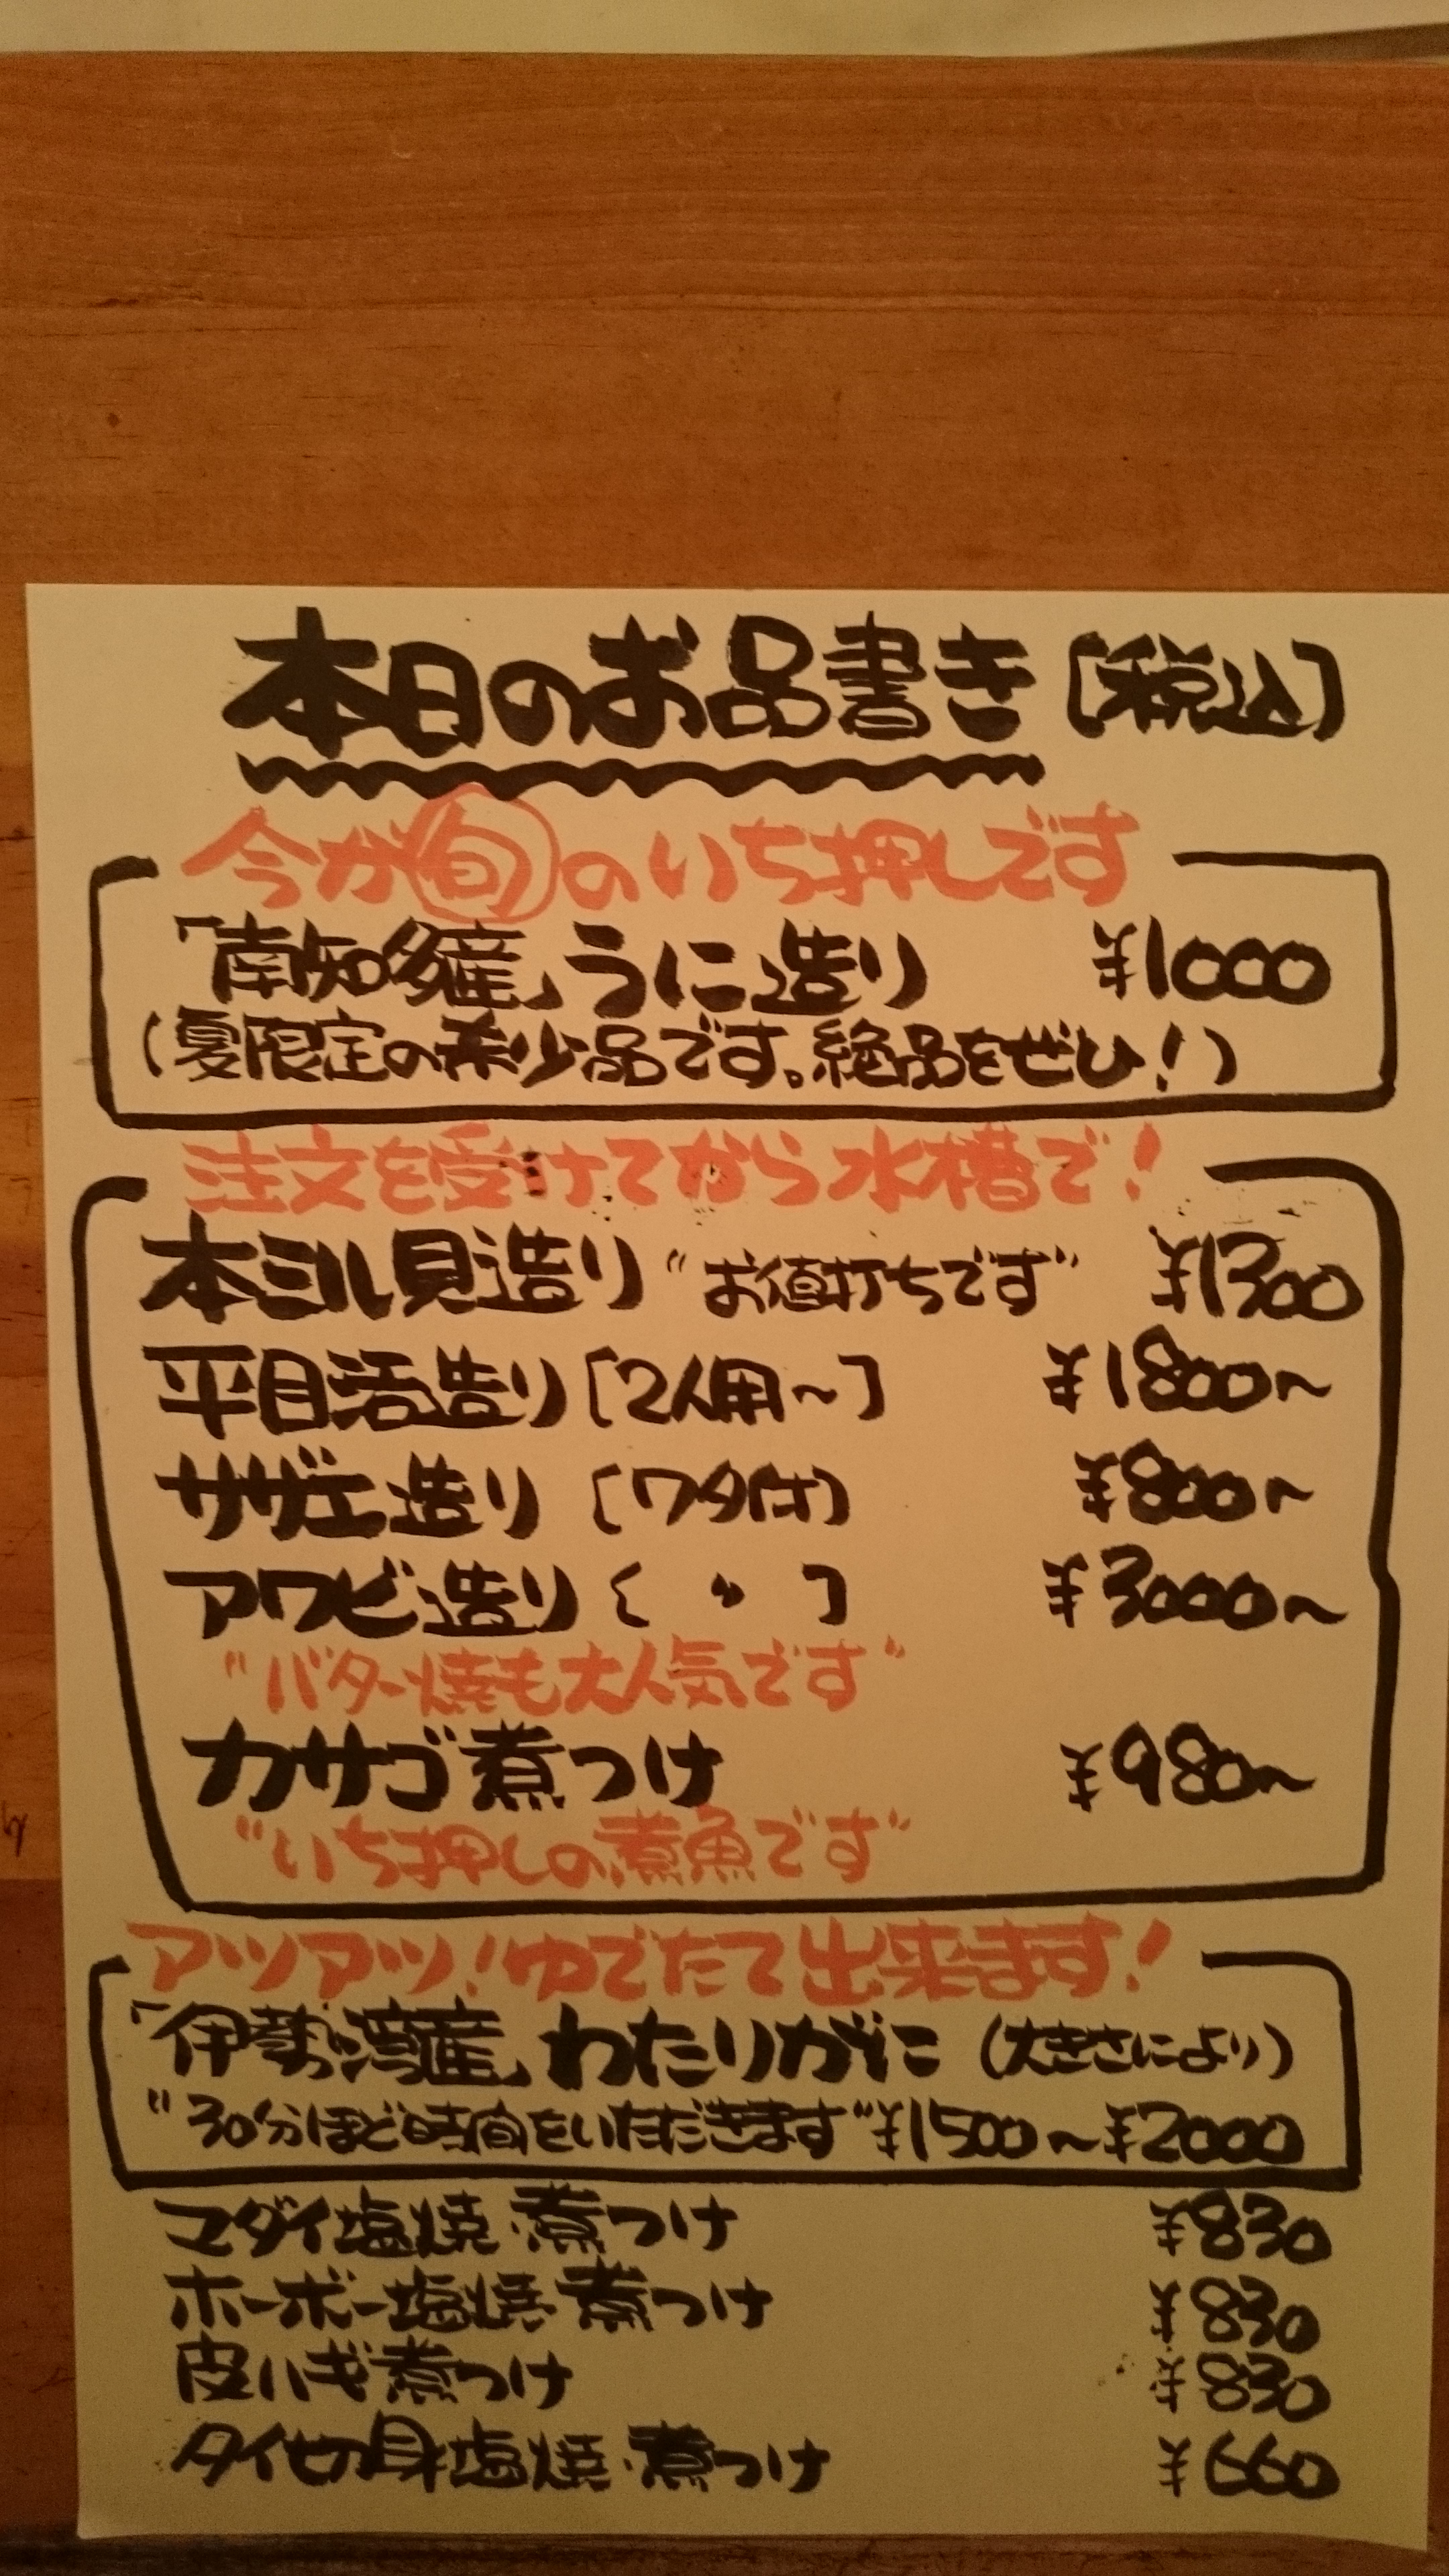 本日のお品書き [税込]
今が旬のいち押しです
「南知多産」うに造り ¥1000
(夏限定の希少品です。絶品をぜひ!)
注文を受けてから水槽で!
本ミル貝造り "お値打ちです" ¥1300
平目活造り [2人用~] ¥1800~
サザエ造り [ワタ付] ¥800~
アワビ造り [ 〃 ] ¥3000~
"バター焼も大人気です"
カサゴ煮つけ ¥980~
"いち押しの煮魚です"
アツアツ!ゆでたて出来ます!
「伊勢湾産」わたりがに (大きさにより)
"30分ほど時間をいただきます" ¥1500~¥2000
マダイ塩焼・煮つけ ¥830
ホーボー塩焼・煮つけ ¥830
皮ハギ煮つけ ¥830
タイ切身塩焼・煮つけ ¥660